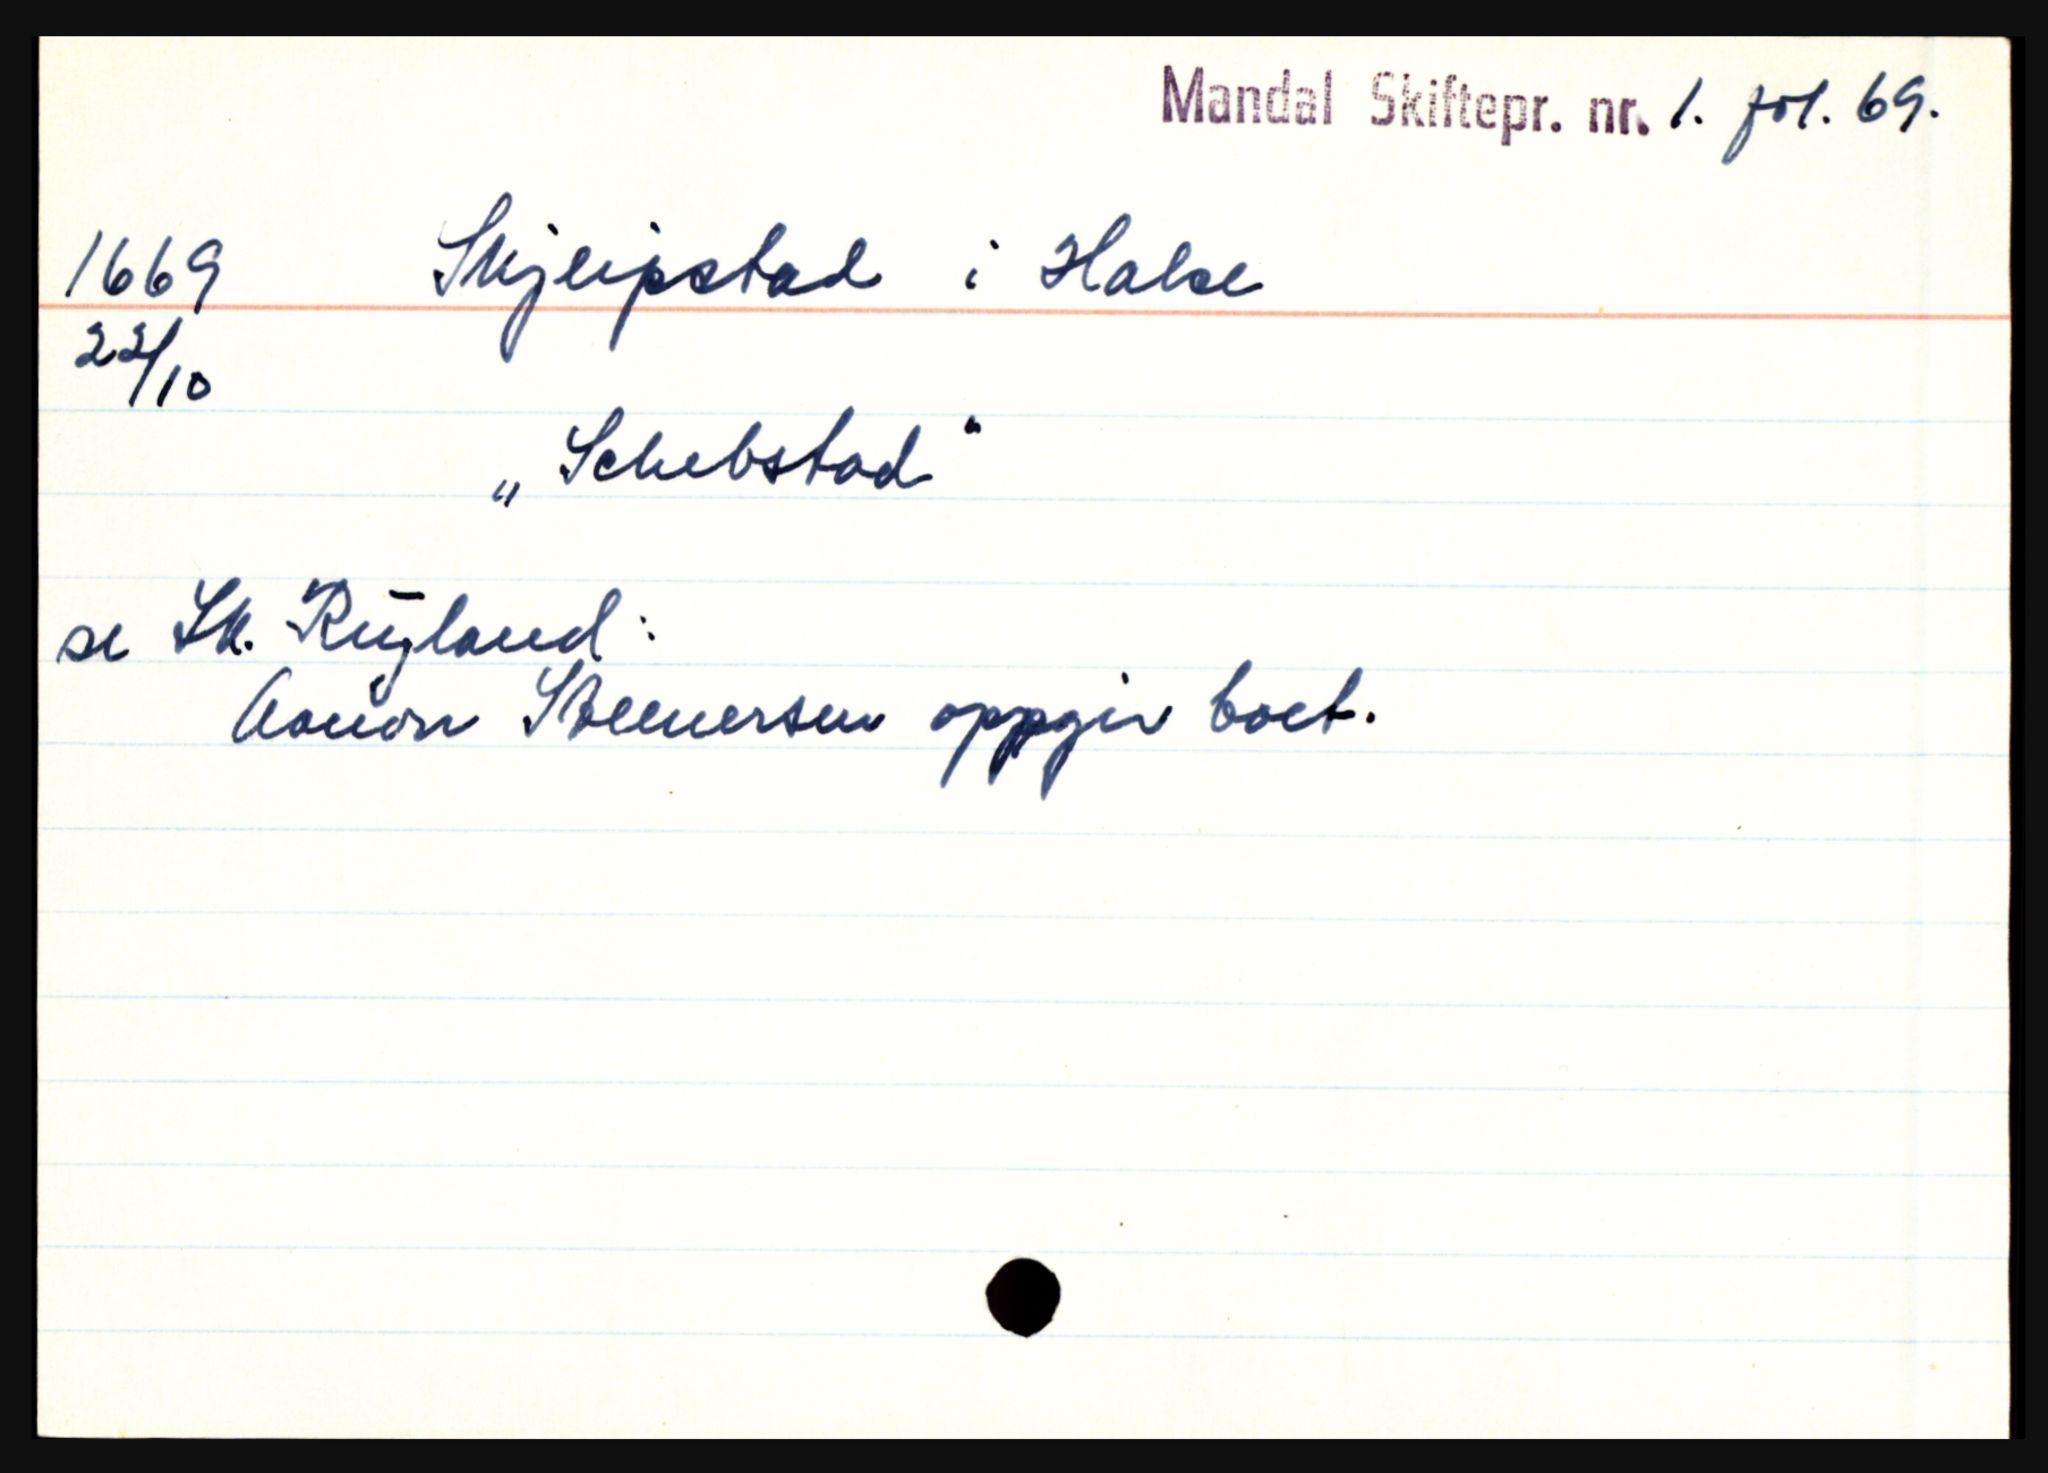 Mandal Skiftepr. nr. 1. fol. 69.
1669 Skjeipstad i Halse
22/10
„Schebstad“
se Sk. Rugland:
Aanon Steenersen oppgir boet.